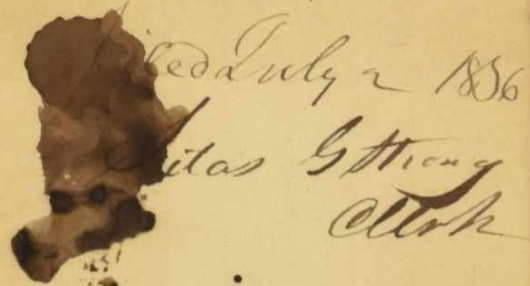 Filed July 2 1836
Silas G Strong
Clerk